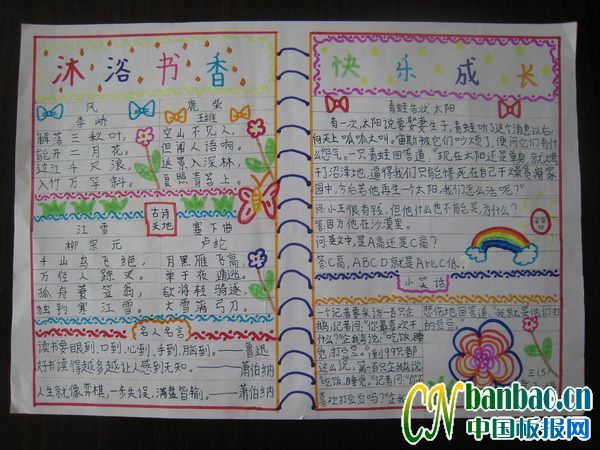 沐浴书香
风
李峤
解落三秋叶,
能开二月花。
过江千尺浪,
入竹万竿斜。
鹿柴
王维
空山不见人,
但闻人语响。
返景入深林,
复照青苔上。
古诗
天地
江雪
柳宗元
千山鸟飞绝,
万径人踪灭。
孤舟蓑笠翁,
独钓寒江雪。
塞下曲
卢纶
月黑雁飞高,
单于夜遁逃。
欲将轻骑逐,
大雪满弓刀。
名人名言
读书要眼到、口到、心到、手到、脑到。——鲁迅
好书读得越多越让人感到无知。——萧伯纳
人生就像弈棋,一步失误,满盘皆输。——萧伯纳
快乐成长
青蛙告状太阳
有一次,太阳说要娶妻生子,青蛙听了这个消息以后,
向天上呱呱大叫。宙斯被它们吵烦了,便问它们有什
么怨气。一只青蛙回答道:"现在太阳还是单身,就烘烤
干沼泽地,逼得我们只能凄死在自己干燥贫瘠家
园中,今后若他再生一个太阳,我们怎么活呢?"
问:小王很有钱,但他什么也不能买,为什么?
答:因为他在沙漠里。
问:英文中,是A高还是C高?
答:C高,ABCD就是A比C低。
小笑话
一个记者要采访一百只企
鹅,记者问:"你最喜欢干
什么?"企鹅说:"吃饭,睡
觉,打豆豆。"到99只都
这么说,第一百只企鹅说:
"吃饭,睡觉。"记者问:"你不
喜欢打豆豆吗?"企鹅
悲伤地回答道:"我就是他们打
的豆豆。"
三(5)
CN banbao.cn
中国板报网